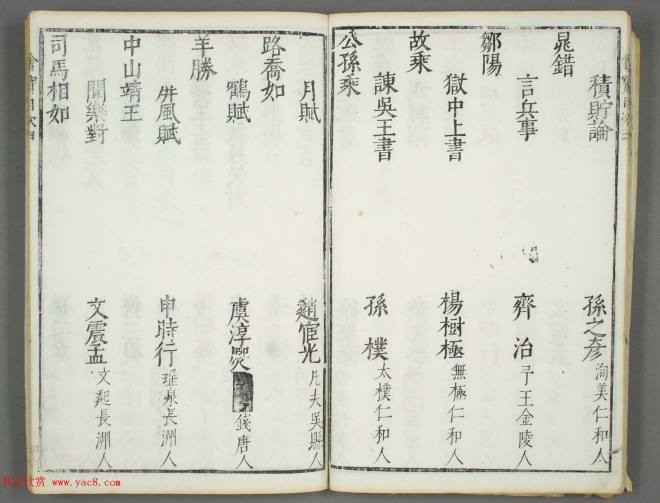 積貯論 孫之彥 洵美仁和人
晁錯
言兵事 齊治 王金陵人
鄒陽
獄中上書 楊樹極 無極仁和人
故乘
諫吳王書 孫樸 太樸仁和人
公孫乘
月賦 趙宦光 凡夫吳縣人
路喬如
鶴賦 虞淳熈 錢唐人
羊勝
屏風賦 申時行 瑶泉長洲人
中山靖王
聞樂對 文震孟 文起長洲人
司馬相如
书法欣赏
www.yac8.com